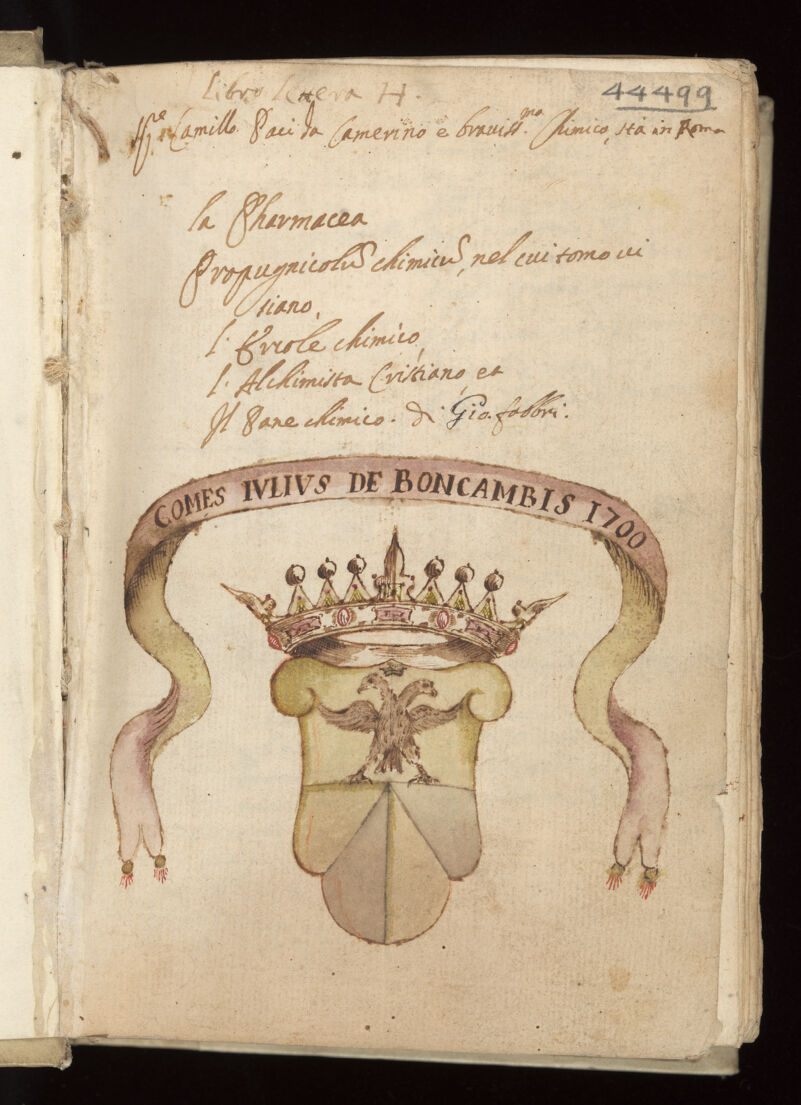 Libro lettera H.
44499
Sr.e Camillo Paci da Camerino è braviss.mo Chimico, sta in Roma
la Pharmacea
Propugnicolus chimicus, nel cui tomo vi
siano,
l' Ercole chimico,
l' Alchimista Cristiano, et
Il Pane chimico. di Gio. fabbri.
COMES IVLIVS DE BONCAMBIS 1700